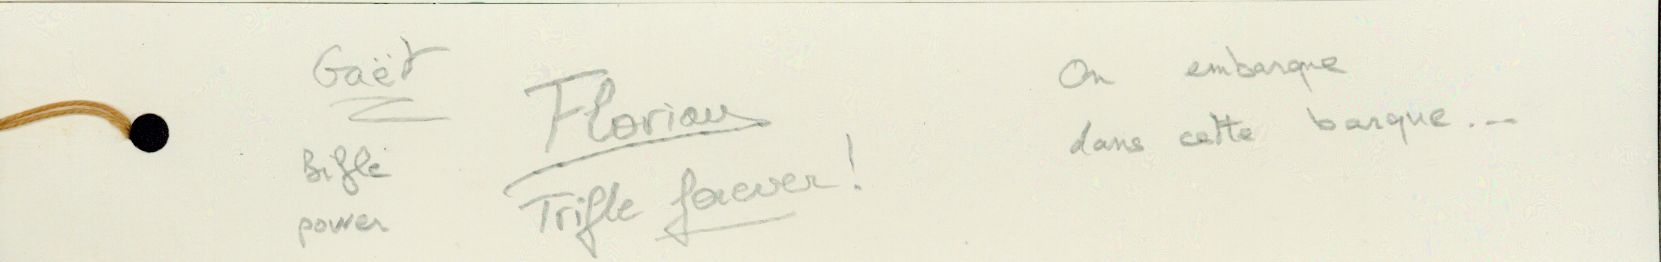 Gaët
Bifle
power
Florian
Trifle forever !
On embarque
dans cette barque...